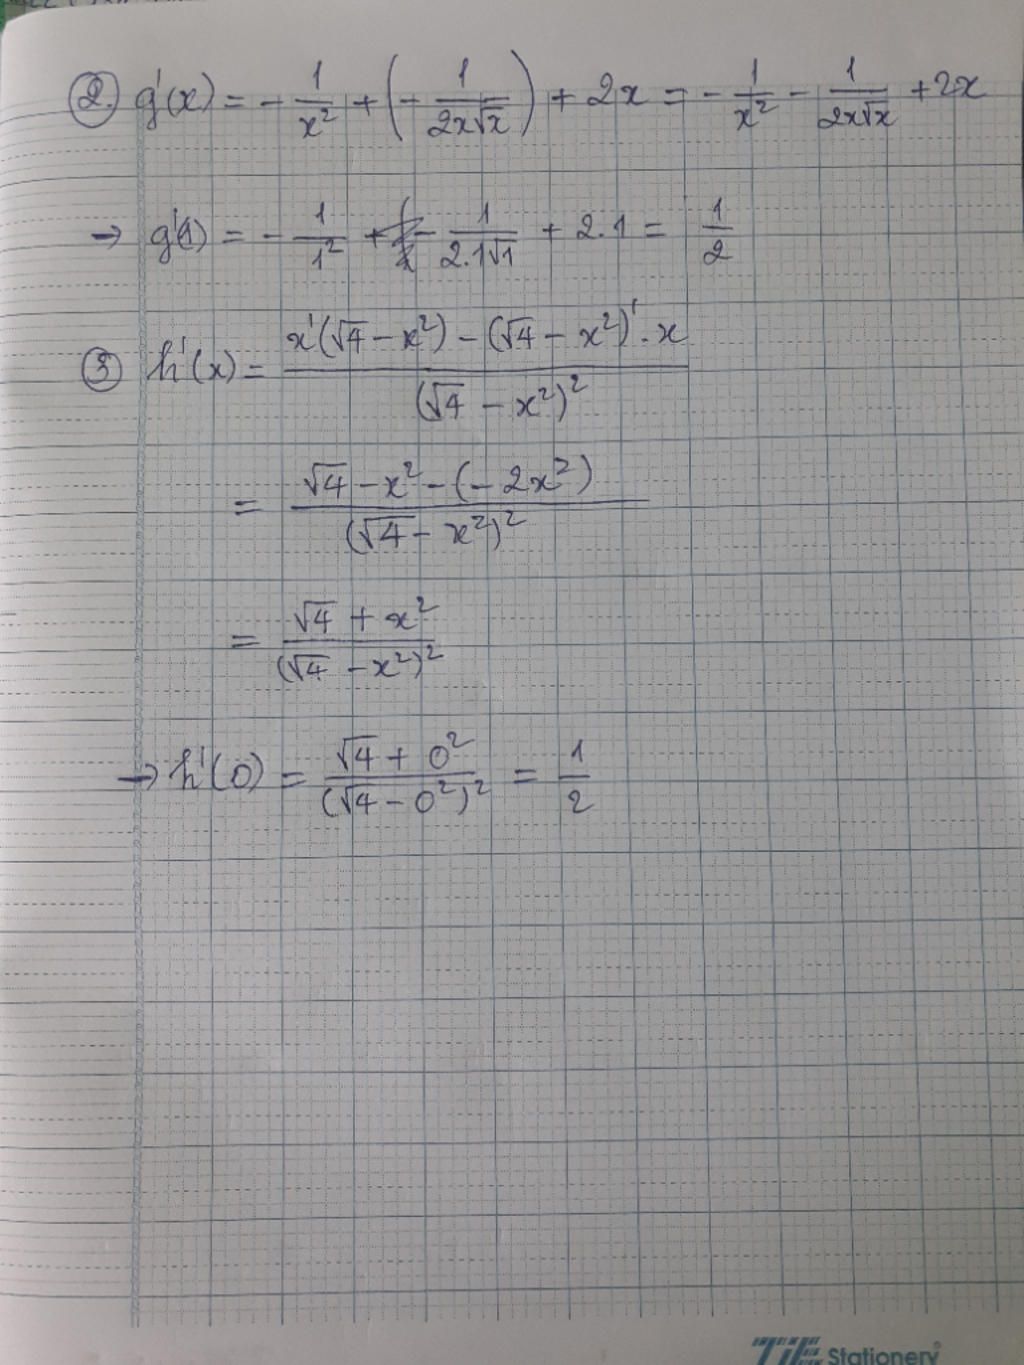 2. g'(x) = - 1/x² + (- 1/2x√x) + 2x = - 1/x² - 1/2x√x + 2x
→ g'(1) = - 1/1² - 1/2.1√1 + 2.1 = 1/2
3 h'(x) = x'(√4 - x²) - (√4 - x²)'.x / (√4 - x²)²
= √4 - x² - (- 2x²) / (√4 - x²)²
= √4 + x² / (√4 - x²)²
→ h'(0) = √4 + 0² / (√4 - 0²)² = 1/2
TiE Stationery